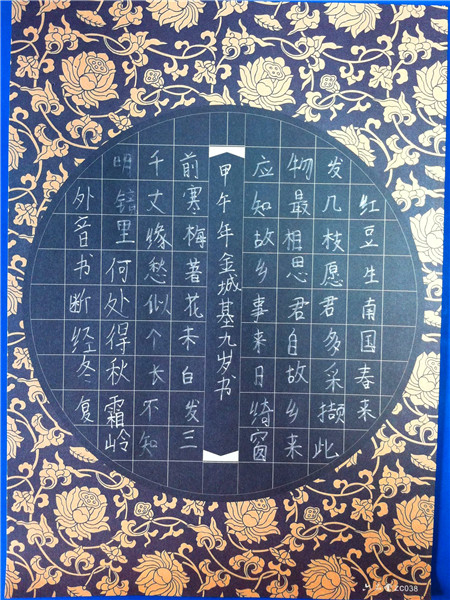 红豆生南国春来
发几枝愿君多采撷此
物最相思君自故乡来
应知故乡事来日绮窗
甲午年金城基九岁书
前寒梅著花未白发三
千丈缘愁似个长不知
明镜里何处得秋霜岭
外音书断经冬复
ZC038